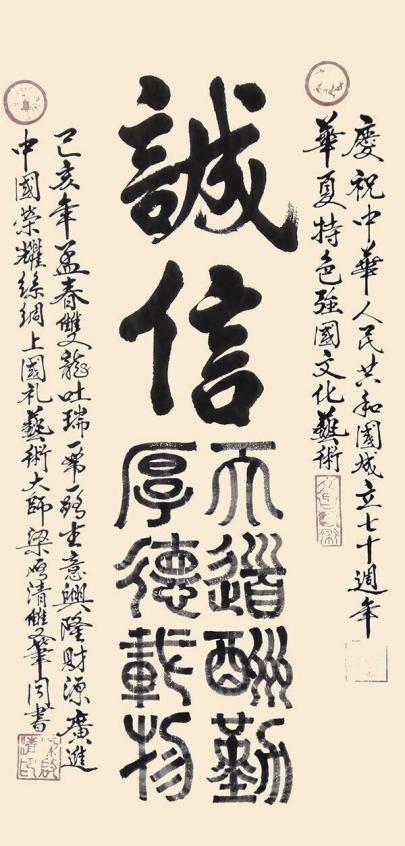 慶祝中華人民共和國成立七十週年
華夏特色強國文化藝術
誠信
天道酬勤
厚德載物
己亥年孟春雙龍吐瑞一帶一路生意興隆財源廣進
中國榮耀絲綢上國礼藝術大師梁啓清雙筆同書